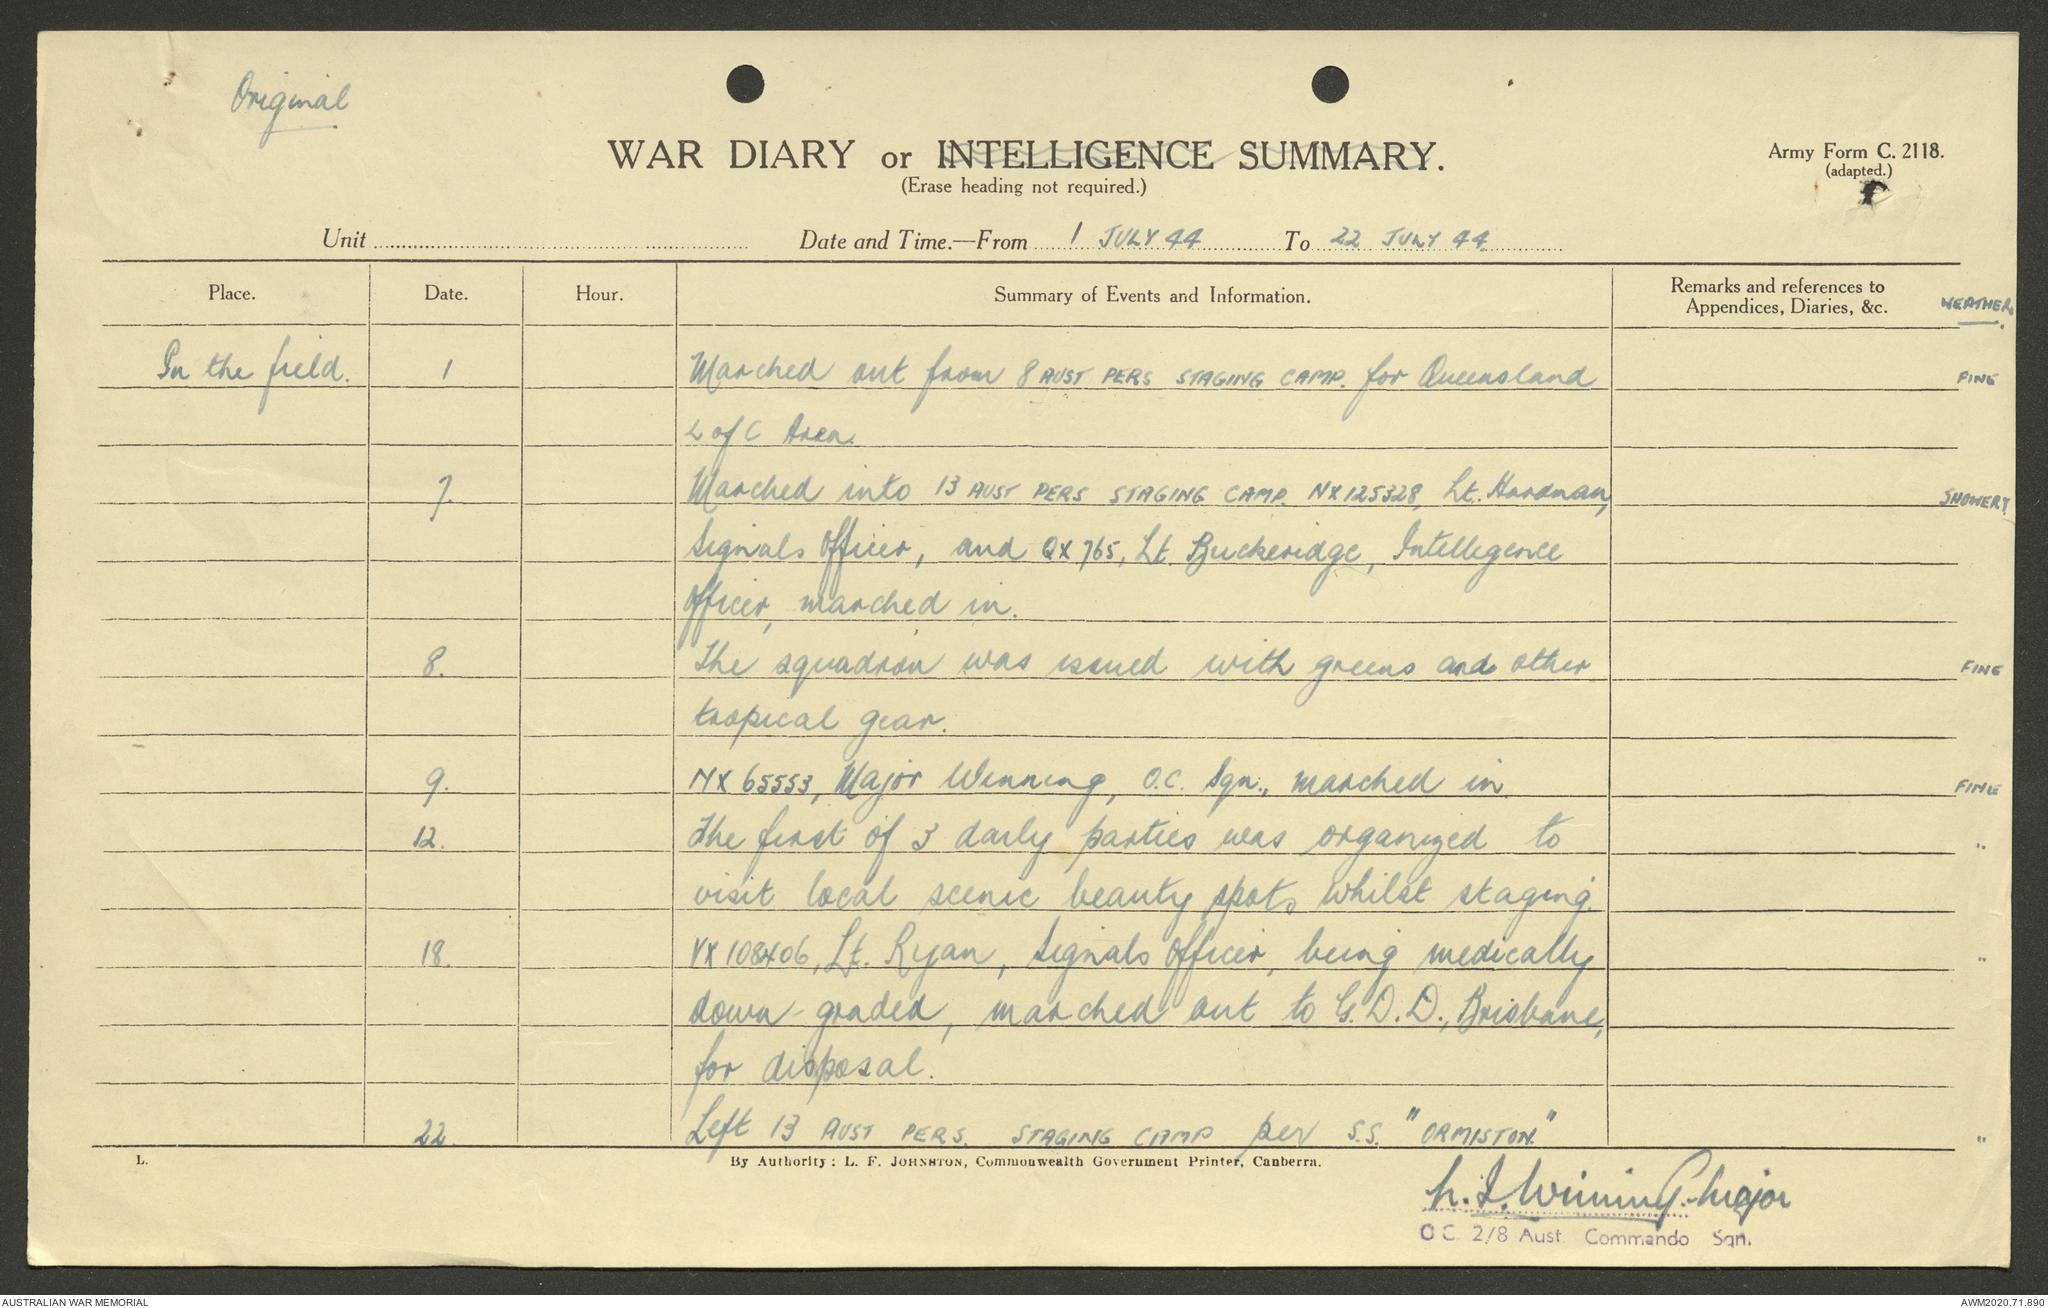 Original
WAR DIARY or INTELLIGENCE SUMMARY.
(Erase heading not required.)
Army Form C. 2118.
(adapted.)
Unit
Date and Time.—From 1 JULY 44 To 22 JULY 44
Place. Date. Hour. Summary of Events and Information. Remarks and references to
Appendices, Diaries, &c. WEATHER.
In the field. 1 Marched out from 8 AUST PERS STAGING CAMP. for Queensland FINE
L of C Area.
7. Marched into 13 AUST PERS STAGING CAMP. NX125328, Lt. Hardman, SHOWERY.
Signals Officer, and QX765, Lt. Buckeridge, Intellegence
Officer, marched in.
8. The squadron was issued with greens and other FINE
tropical gear.
9. NX 65553, Major Winning, O.C. Sqn., marched in FINE
12. The first of 3 daily parties was organized to "
visit local scenic beauty spots whilst staging.
18. VX108406, Lt. Ryan, Signals Officer, being medically "
down-graded, marched out to G.D.D., Brisbane,
for disposal.
22. Left 13 AUST PERS. STAGING CAMP per S.S. "ORMISTON." "
L. By Authority: L. F. JOHNSTON, Commonwealth Government Printer, Canberra.
Winning Major
OC. 2/8 Aust. Commando Sqn.
AUSTRALIAN WAR MEMORIAL
AWM2020.71.890